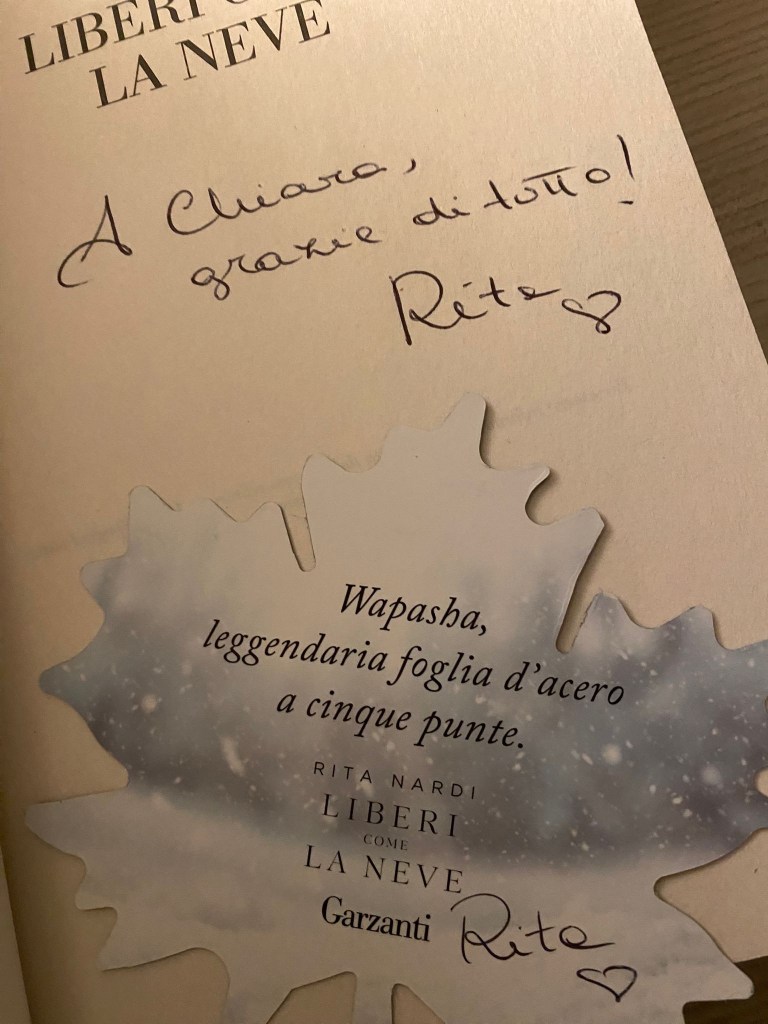 LIBERI
LA NEVE
A Chiara,
grazie di tutto!
Rita
Wapasha,
leggendaria foglia d'acero
a cinque punte.
RITA NARDI
LIBERI
COME
LA NEVE
Garzanti
Rita